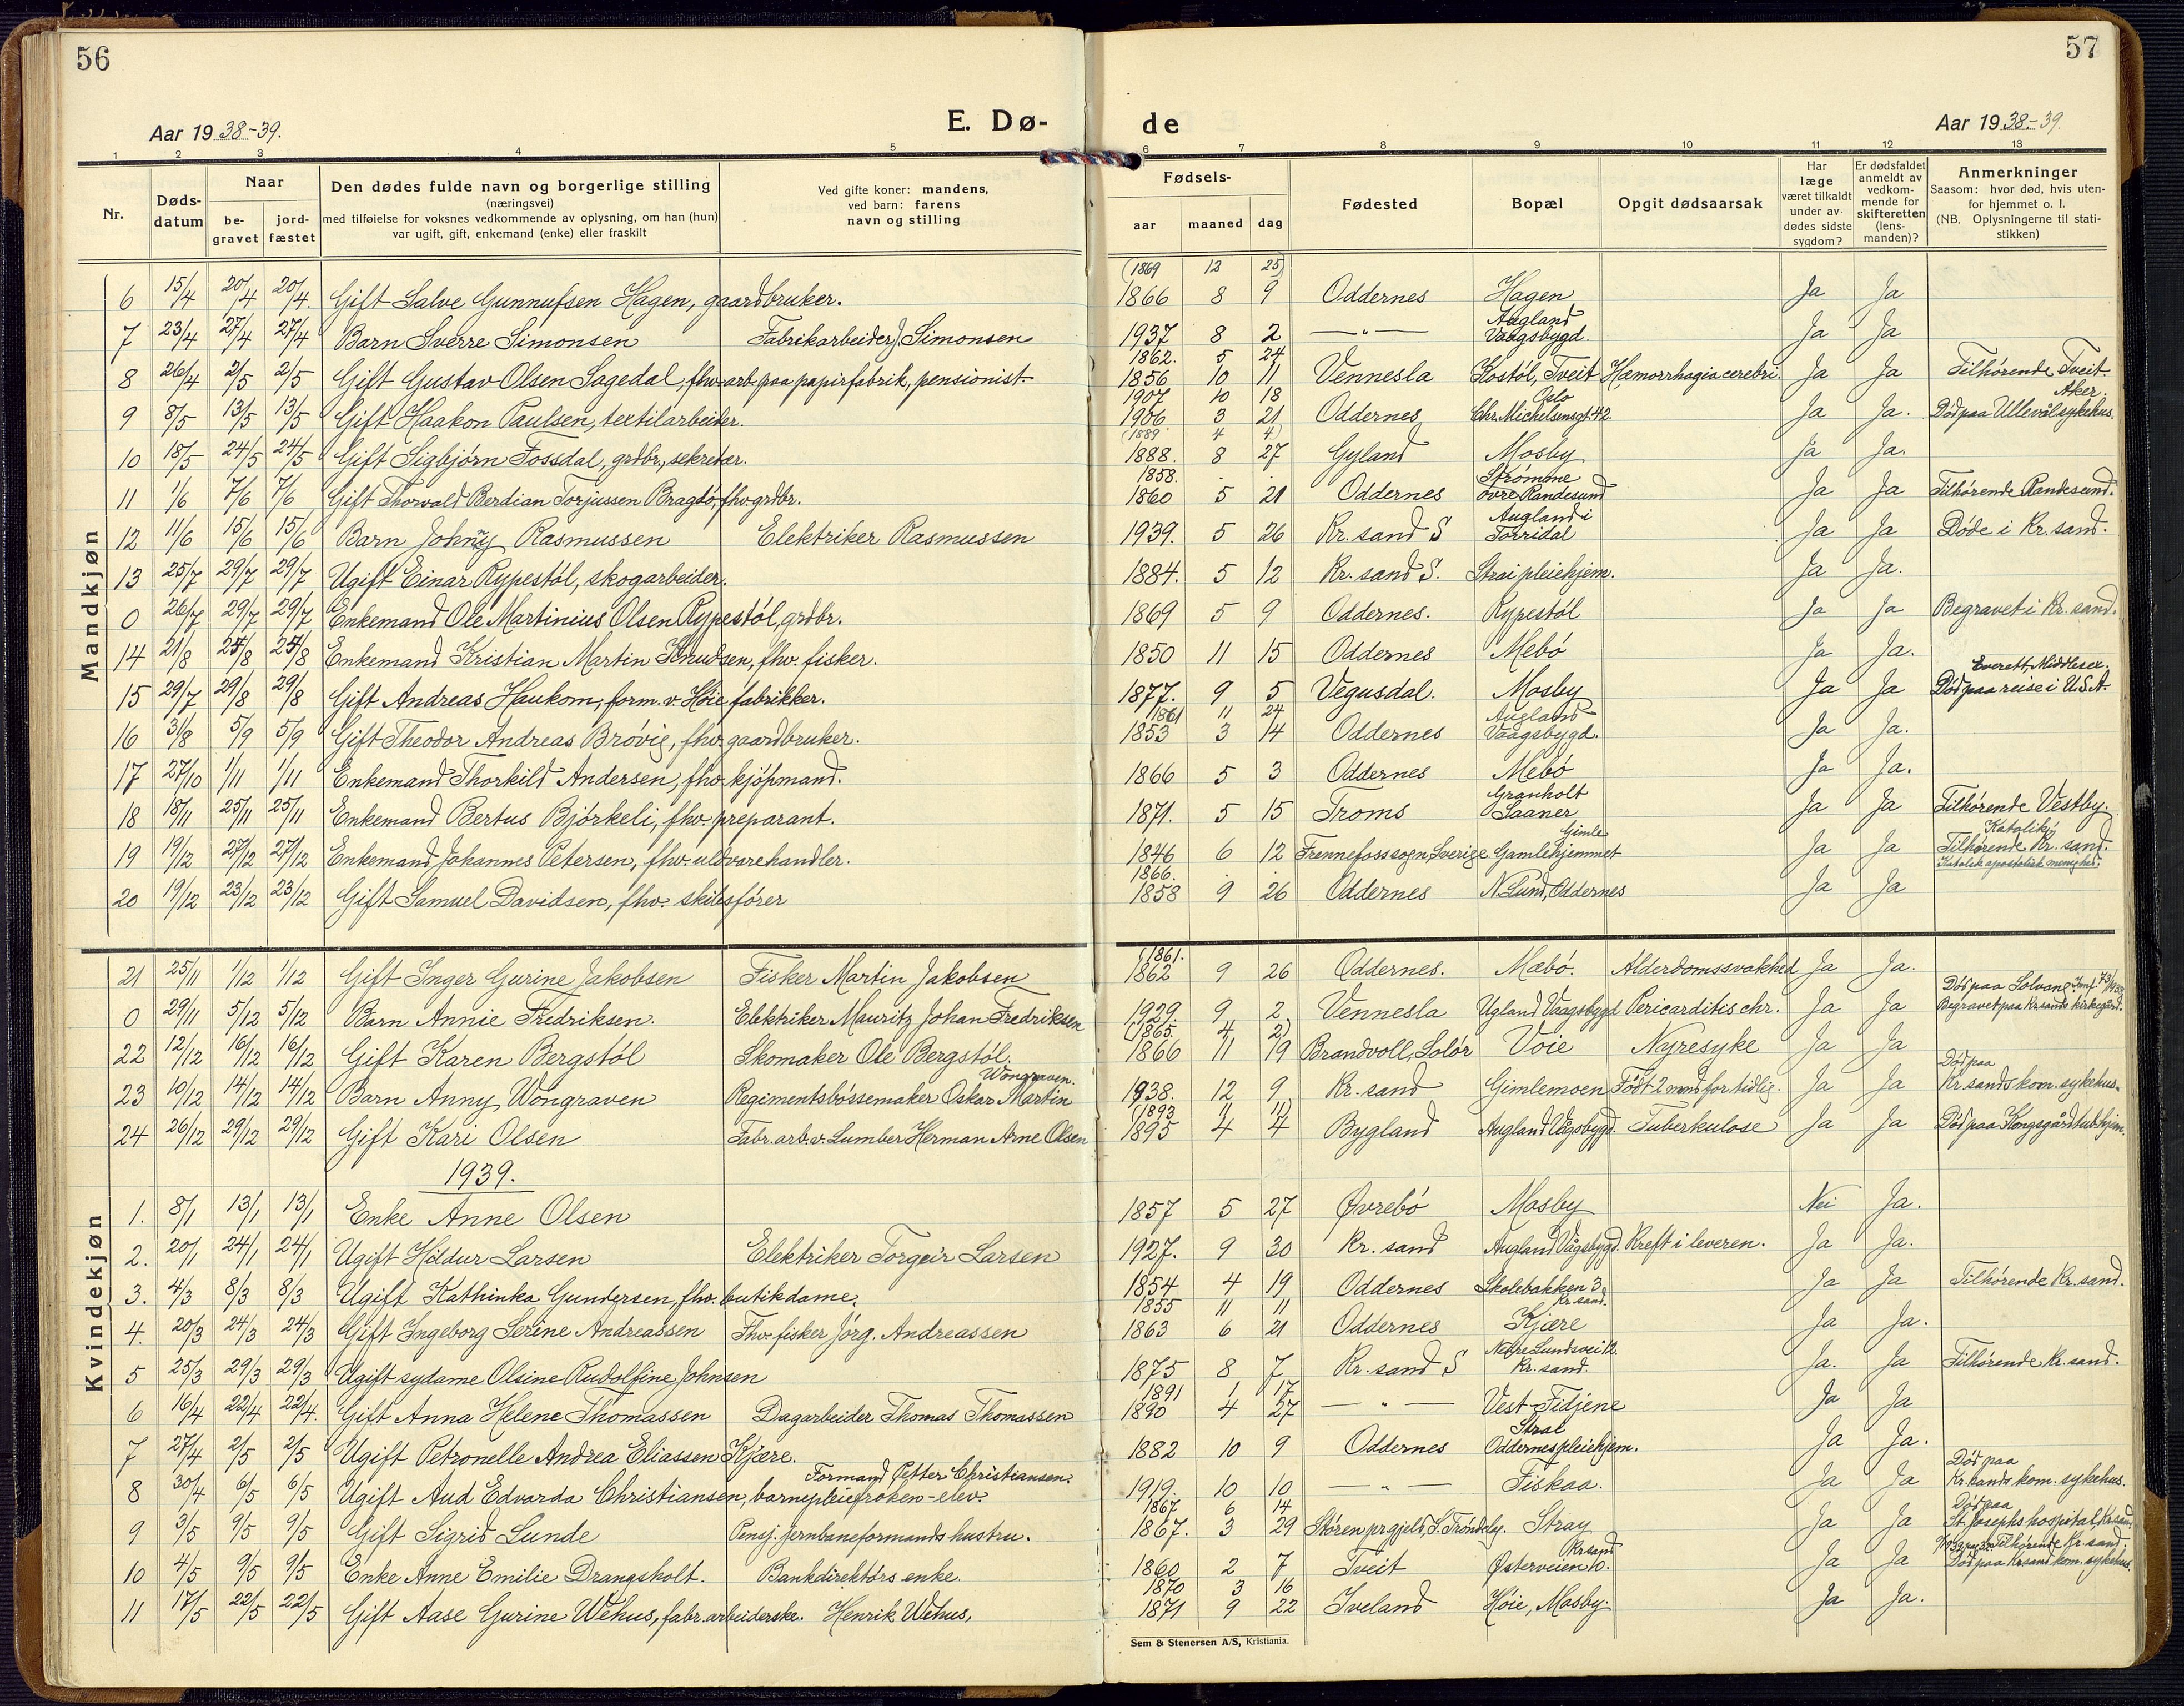 56
57
Aar 1938-39.
E. Dø-
de
Aar 1938-39.
1 2 3 4 5 6 7 8 9 10 11 12 13
Nr.
Døds-
datum
Naar
be-
gravet
jord-
fæstet
Den dødes fulde navn og borgerlige stilling
(næringsvei)
med tilføielse for voksnes vedkommende av oplysning, om han (hun)
var ugift, gift, enkemand (enke) eller fraskilt
Ved gifte koner: mandens,
ved barn: farens
navn og stilling
Fødsels-
aar
maaned
dag
Fødested
Bopæl
Opgit dødsaarsak
Har
læge
været tilkaldt
under av-
dødes sidste
sygdom?
Er dødsfaldet
anmeldt av
vedkom-
mende for
skifteretten
(lens-
manden)?
Anmerkninger
Saasom: hvor død, hvis uten-
for hjemmet o. l.
(NB. Oplysningerne til stati-
stikken)
Mandkjøn
(1869 12 25)
6 15/4 20/4 20/4. Gift Salve Gunnufsen Hagen, gaardbruker. 1866 8 9 Oddernes Hagen Ja Ja
Augland
7 23/4 27/4 27/4 Barn Sverre Simonsen Fabrikarbeider J. Simonsen 1937 8 2 — " — Vaagsbygd. Ja Ja
1862. 5 24
8 26/4 2/5 2/5 Gift Gustav Olsen Sagedal, fhv. arb. paa papirfabrik, pensionist 1856 10 11 Vennesla Kostøl, Tveit Hæmorrhagia cerebri. Ja Ja Tilhørende Tveit.
1907 10 18 Oslo Aker.
9 8/5 13/5 13/5 Gift Haakon Paulsen, textilarbeider. 1906 3 21 Oddernes Chr. Michelsensgt. 42. Ja Ja. Død paa Ullevål sykehus.
(1889 4 4)
10 18/5 24/5 24/5 Gift Sigbjørn Fossdal, grdbr., sekretær. 1888. 8 27 Gyland Mosby Ja Ja.
1858. . . Strømme
11 1/6 7/6 7/6 Gift Thorvald Berdian Torjussen Bragdø, fhv. grdbr. 1860 5 21 Oddernes øvre, Randesund Ja Ja Tilhørende Randesund.
Augland i
12 11/6 15/6 15/6 Barn Johnny Rasmussen Elektriker Rasmussen 1939. 5 26 Kr. sand S Torridal Ja Ja Døde i Kr. sand.
13 25/7 29/7 29/7 Ugift Einar Rypestøl, skogarbeider. 1884. 5 12 Kr. sand S. Strai pleiehjem. Ja Ja.
0 26/7 29/7 29/7 Enkemand Ole Martinius Olsen Rypestøl, grdbr. 1869 5 9 Oddernes. Rypestøl Ja Ja Begravet i Kr. sand.
14 21/8 25/8 25/8 Enkemand Kristian Martin Knudsen, fhv. fisker. 1850 11 15 Oddernes Mebø Ja Ja.
Everett, Middlesex.
15 29/7 29/8 29/8 Gift Andreas Haukom, form. v. Høie fabrikker. 1877. 9 5 Vegusdal. Mosby Ja Ja Død paa reise i U.S.A.
1861 11 24 Augland
16 31/8 5/9 5/9 Gift Theodor Andreas Brøvig, fhv. gaardbruker. 1853 3 14 Oddernes Vaagsbygd. Ja Ja.
17 27/10 1/11 1/11 Enkemand Thorkild Andersen, fhv. kjøpmand. 1866 5 3 Oddernes Mebø Ja Ja.
Granholt
18 18/11 25/11 25/11 Enkemand Bertus Bjørkeli, fhv. preparant. 1871. 5 15 Troms Saaner Ja Ja Tilhørende Vestby.
Gimle Katolik
19 19/12 27/12 27/12 Enkemand Johannes Petersen, fhv. uldvarehandler. 1846 6 12 Frennefoss sogn, Sverige Gamlehjemmet Ja Ja Tilhørende Kr. sand.
Katolsk apostolisk menighed.
1866. . .
20 19/12 23/12 23/12 Gift Samuel Davidsen, fhv. skibsfører 1858 9 26 Oddernes N. Lund, Oddernes Ja Ja
Kvindekjøn
(1861.
21 25/11 1/12 1/12 Gift Inger Gurine Jakobsen Fisker Martin Jakobsen 1862 9 26 Oddernes. Mæbø. Alderdomssvakhed Ja Ja.
Død paa Solvang
0 29/11 5/12 5/12 Barn Annie Fredriksen. Elektriker Mauritz Johan Fredriksen 1929. 9 2 Vennesla Ugland Vaagsbygd Pericarditis chr. Ja Ja Begravet paa Kr.sands kirkegård.
(1865. 4 2)
22 12/12 16/12 16/12 Gift Karen Bergstøl Skomaker Ole Bergstøl. 1866 11 19 Brandvoll, Solør Voie Nyresyke Ja Ja
Wongraven. Død paa
23 10/12 14/12 14/12 Barn Anny Wongraven Regimentsbørsemaker Oskar Martin 1938. 12 9 Kr. sand Gimlemoen Født 2 mnd for tidlig. Ja Ja Kr. sands kom. sykehus.
(1893 11 14)
24 26/12 29/12 29/12 Gift Kari Olsen Fabr. arb. v. Lumber Herman Arne Olsen 1895 4 4 Bygland Augland Vågsbygd. Tuberkulose Ja Ja Død paa Kongsgård tub.hjem.
1939.
1. 8/1 13/1 13/1 Enke Anne Olsen 1857 5 27 Øvrebø Mosby Nei Ja.
2. 20/1 24/1 24/1 Ugift Hildur Larsen Elektriker Torgeir Larsen 1927. 9 30 Kr. sand Augland Vågsbygd. Kreft i leveren. Ja Ja.
3. 4/3 8/3 8/3 Ugift Kathinka Gundersen, fhv. butikdame. 1854 4 19 Oddernes Skolebakken 3 Ja Ja Tilhørende Kr. sand.
1855 11 11 Kr. sand.
4. 20/3 24/3 24/3 Gift Ingeborg Serine Andreassen Fhv. fisker Jørg. Andreassen 1863 6 21 Oddernes Kjære Ja Ja.
Nedre Lundsvei 12.
5 25/3 29/3 29/3 Ugift sydame Olsine Rudolfine Johnsen 1875 8 7 Kr. sand S Kr. sand. Ja. Ja Tilhørende Kr. sand.
1891 1 17
6 16/4 22/4 22/4. Gift Anna Helene Thomassen Dagarbeider Thomas Thomassen 1890 4 27 — " — Vest-Fidjene Ja Ja
Strai
7 27/4 2/5 2/5 Ugift Petronelle Andrea Eliassen Kjære. 1882 10 9 Oddernes Oddernes pleiehjem. Ja Ja.
Formand Petter Christiansen. Død paa
8 30/4 6/5 6/5 Ugift Aud Edvarda Christiansen, barnepleiefrøken-elev. 1919. 10 10 — " — Fiskaa. Ja Ja Kr. sands kom. sykehus.
1867 6 14 Død paa
9 3/5 9/5 9/5 Gift Sigrid Lunde Pensj. jernbaneformands hustru. 1867. 3 29 Støren prgjeld, S. Trøndelg. Stray Ja Ja St. Josephs hospital, Kr.sand.
Kr.sand Tilhørende Kr. sand.
10 4/5 9/5 9/5 Enke Anne Emilie Drangsholt. Bankdirektørs enke. 1860 2 7 Tveit Østerveien 10. Ja Ja Død paa Kr.sand kom. sykehus.
1870 3 16
11 17/5 22/5 22/5 Gift Aase Gurine Wehus, fabr. arbeiderske. Henrik Wehus, 1871 9 22 Iveland Høie, Mosby. Ja Ja.
Sem & Stenersen A/S, Kristiania.